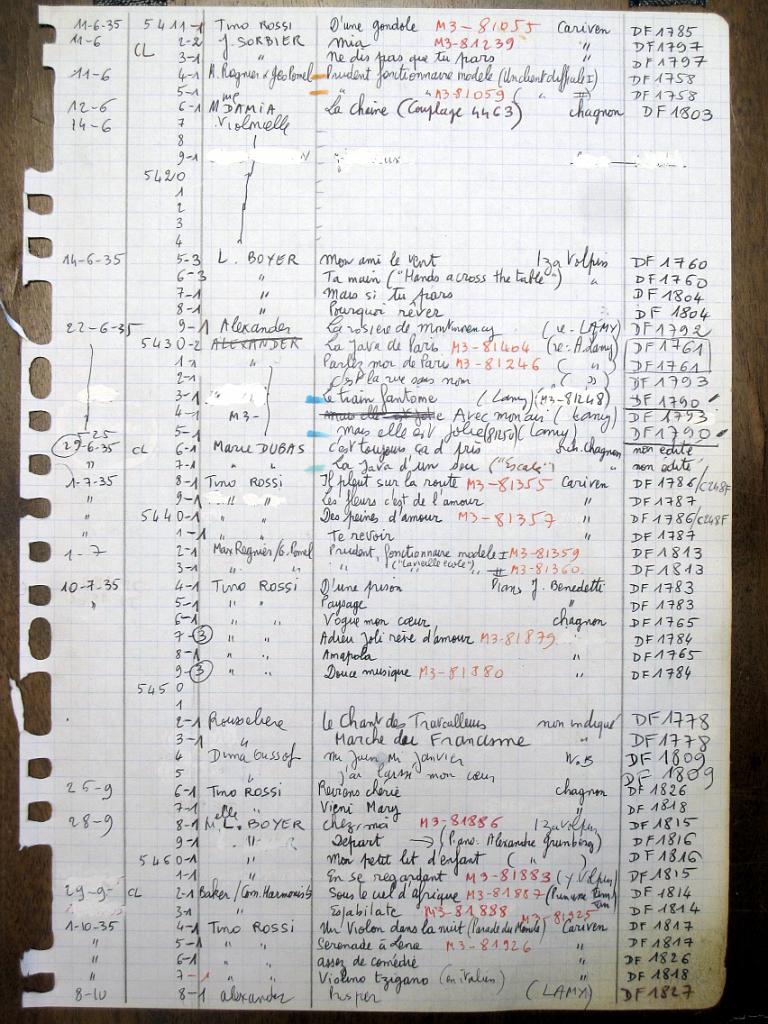 11-6-35 5411-1 Tino ROSSI D'une gondole M3-81055 Cariven DF 1785
11-6 CL 2-2 J. SORBIER Mia M3-81239 " DF 1797
3-1 " Ne dis pas que tu pars " DF 1797
11-6 4-1 M. Regnier & Prudent fonctionnaire modele (Un client difficile I) DF 1758
5-1 " " M3-81059 ( " II) DF 1758
12-6 6-1 Mme DAMIA La chaine (Couplage 4463) chagnon DF 1803
14-6 7 Violoncelle
8
9-1
5420
1
2
3
4
14-6-35 5-3 L. BOYER Mon ami le vent Iza Volpin DF 1760
6-3 " Ta main ("Hands across the table") " DF 1760
7-1 " Mais si tu pars DF 1804
8-1 " Pourquoi rêver DF 1804
22-6-35 9-1 Alexander La rosiere de Montmorency (re-LAMY) DF 1792
5430-2 ALEXANDER La Java de Paris M3-81404 (re: A. Lamy) DF 1761
1-1 " Parlez moi de Paris M3-81246 ( " ) DF 1761
2-1 C'est la rue sans nom ( " ) DF 1793
3-1 Le train fantome (Lamy) (M3-81248) DF 1790
4-1 M3- Avec mon air (Lamy) DF 1793
5-1 mais elle est jolie (81250) (Lamy) DF 1790
29-6-35 CL 6-1 Marie DUBAS c'est toujours ça d'pris chagnon non edité
" 7-1 " " La Java d'un sou ("Escale") " non edité
1-7-35 8-1 Tino ROSSI Il pleut sur la route M3-81355 Cariven DF 1786/C248F
" 9-1 " " Les fleurs c'est de l'amour " DF 1787
" 5440-1 " " Des peines d'amour M3-81357 " DF 1786/C248F
" 1-1 " Te revoir " DF 1787
1-7 2-1 Max Regnier/G. Prudent, fonctionnaire modele I M3-81359 DF 1813
3-1 " " " ("La vieille ecole") " II M3-81360 DF 1813
10-7-35 4-1 Tino ROSSI D'une prison Pians J. Benedetti DF 1783
" 5-1 " " Paysage " DF 1783
6-1 " " Vogue mon cœur chagnon DF 1765
7-3 " " Adieu Joli rêve d'amour M3-81879 " DF 1784
8-1 " " Amapola " DF 1765
9-3 " " Douce musique M3-81880 " DF 1784
5450
1
2-1 Rousseliere Le Chant des Travailleurs non indiqué DF 1778
3-1 " Marche du Francisme " DF 1778
4 Dima Oussof Mi Juin Mi Janvier W.B DF 1809
5 " j'ai laissé mon cœur DF 1809
25-9 6-1 Tino ROSSI Reviens chérie chagnon DF 1826
7-1 " Vieni Mary " DF 1818
28-9 8-1 Melle L. BOYER chez moi M3-81886 Iza Volpin DF 1815
9-1 " Depart (Piano: Alexandre Grunberg) DF 1816
5460-1 " Mon petit lit d'enfant ( " ) DF 1816
1-1 " En se regardant M3-81883 (y Volpin) DF 1815
29-9- CL 2-1 Baker/Com. Harmonists Sous le ciel d'afrique M3-81887 DF 1814
3-1 " Espabilate M3-81888 DF 1814
1-10-35 4-1 Tino ROSSI Un Violon dans la nuit (Parade du Monde) M3-81925 Cariven DF 1817
" 5-1 " " Serenade à Lena M3-81926 " DF 1817
" 6-1 " assez de comédie " DF 1826
" 7-1 " " Violino tzigano (en italien) " DF 1818
8-10 8-1 alexander Prosper (LAMY) DF 1827